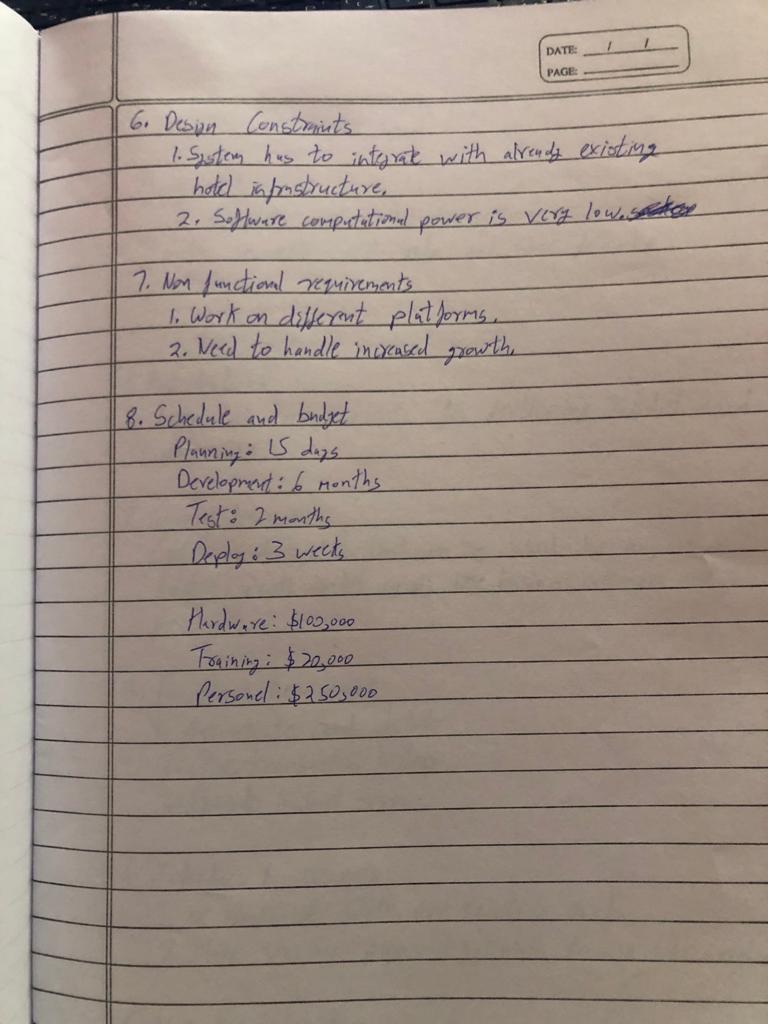 DATE: / /
PAGE:
6. Design Constraints
1. System has to integrate with already existing
hotel infrastructure.
2. Software computational power is very low.
7. Non functional requirements
1. Work on different platforms.
2. Need to handle increased growth.
8. Schedule and budget
Planning: 15 days
Development: 6 months
Test: 2 months
Deploy: 3 weeks
Hardware: $100,000
Training: $20,000
Personel: $250,000